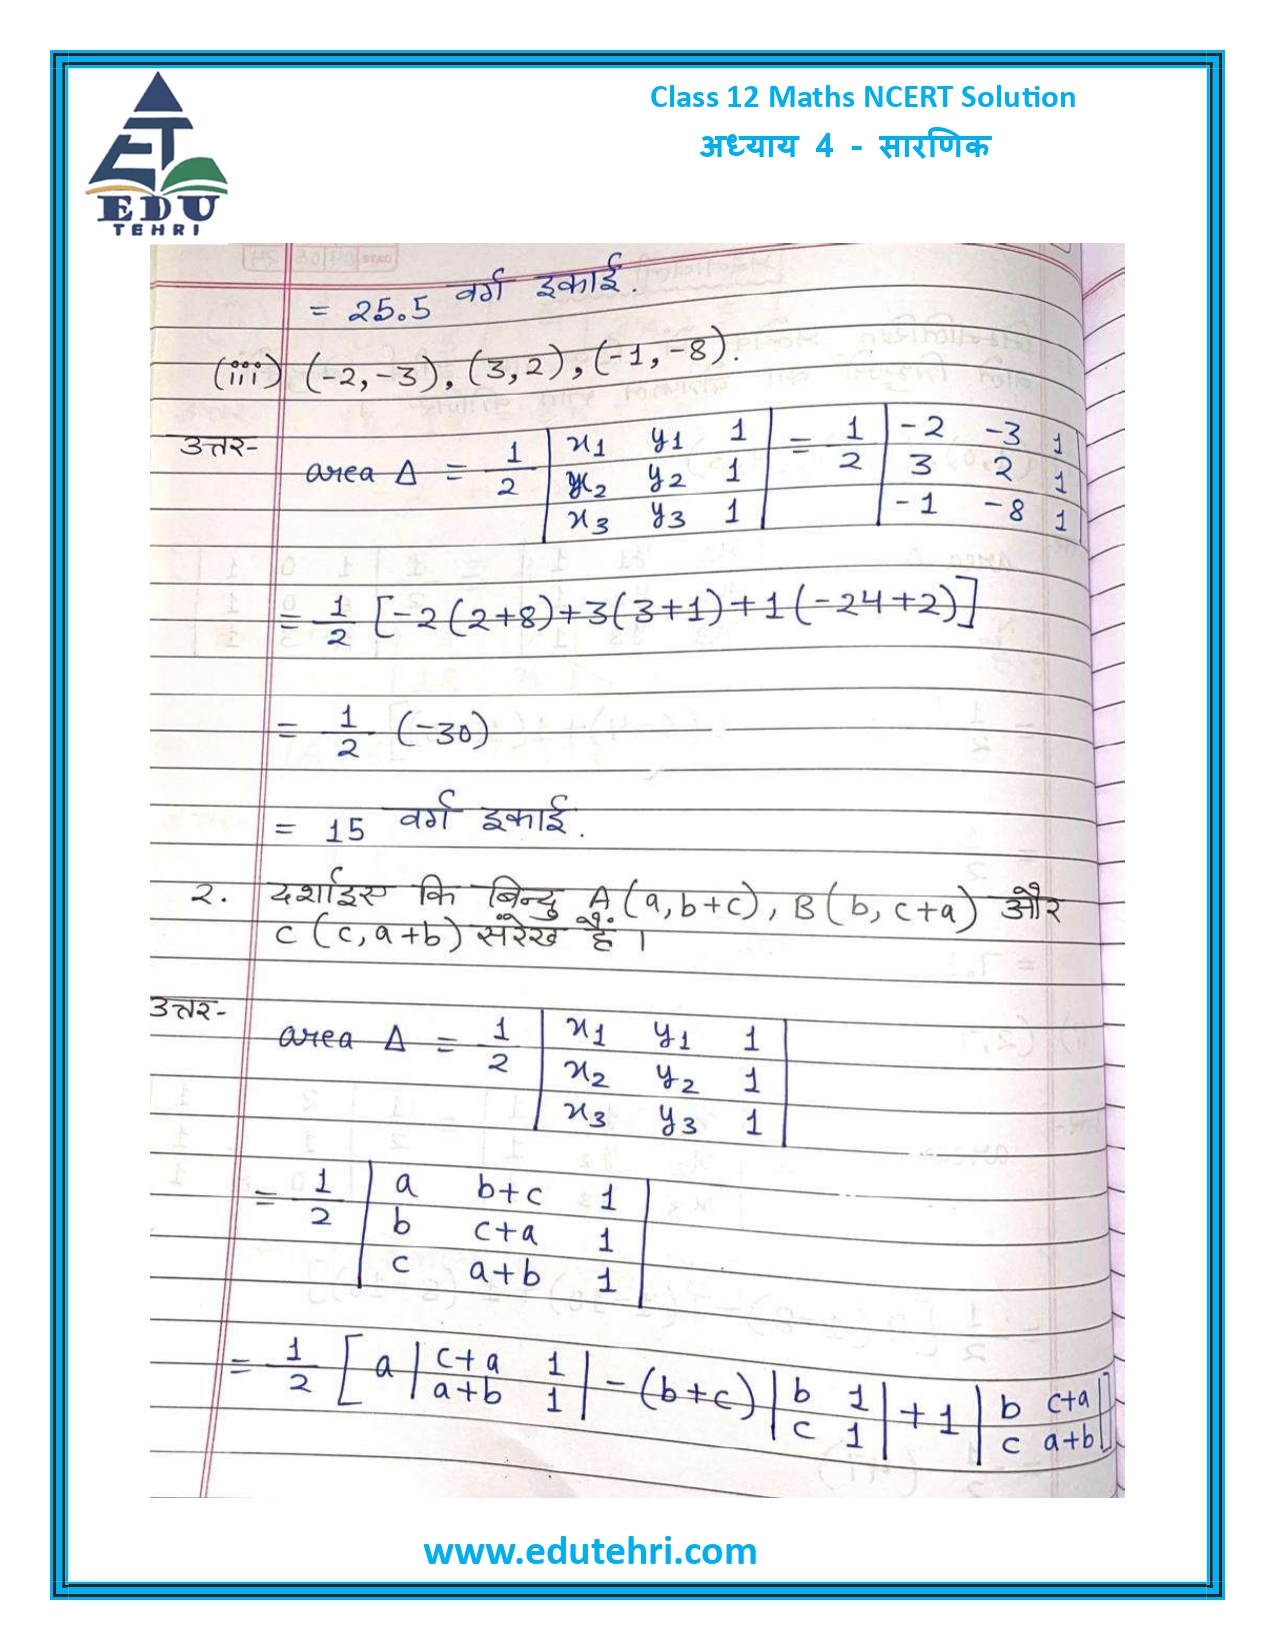 Class 12 Maths NCERT Solution
अध्याय 4 - सारणिक
EDU
TEHRI
= 25.5 वर्ग इकाई.
(iii) (-2,-3), (3,2), (-1,-8).
उत्तर- area Δ = 1/2 | x1 y1 1 | = 1/2 | -2 -3 1 |
| x2 y2 1 | | 3 2 1 |
| x3 y3 1 | | -1 -8 1 |
= 1/2 [-2(2+8)+3(3+1)+1(-24+2)]
= 1/2 (-30)
= 15 वर्ग इकाई.
2. दर्शाइए कि बिन्दु A(a,b+c), B(b,c+a) और
C(c,a+b) संरेख हैं।
उत्तर- area Δ = 1/2 | x1 y1 1 |
| x2 y2 1 |
| x3 y3 1 |
= 1/2 | a b+c 1 |
| b c+a 1 |
| c a+b 1 |
= 1/2 [ a | c+a 1 | - (b+c) | b 1 | + 1 | b c+a | ]
| a+b 1 | | c 1 | | c a+b |
www.edutehri.com